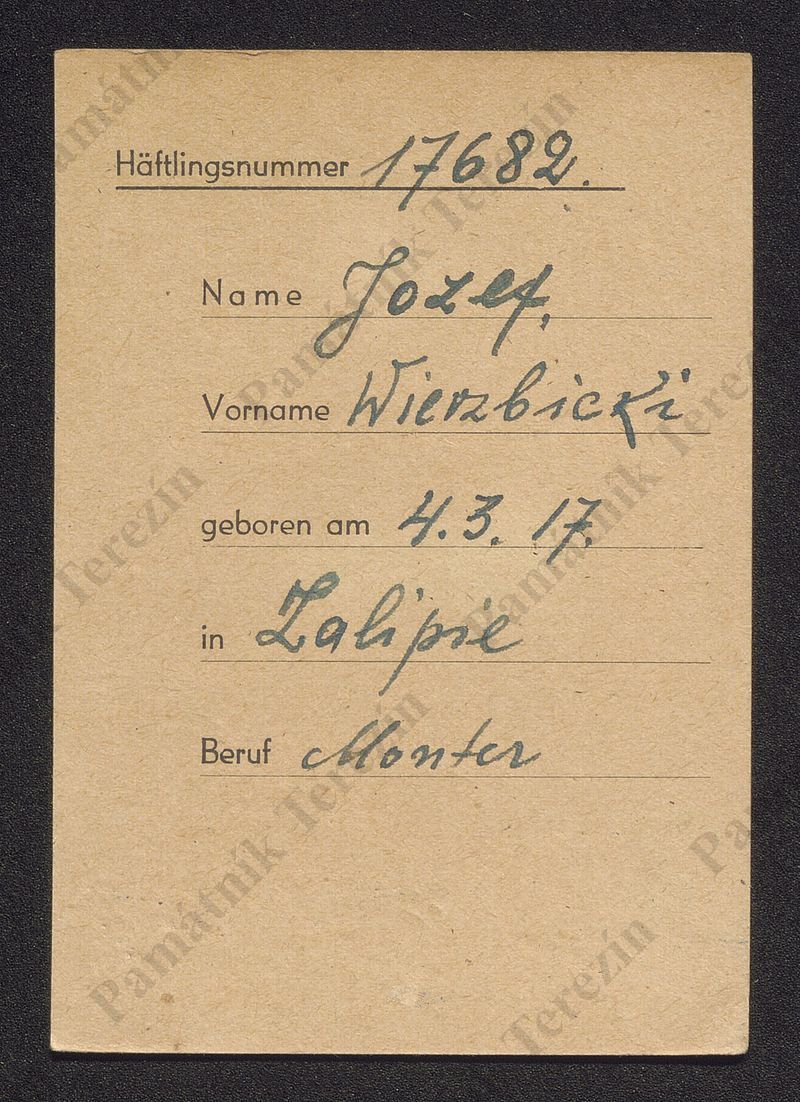 Häftlingsnummer 17682.
Name Jozef,
Vorname Wierzbicki
geboren am 4.3.17.
in Zalipie
Beruf Monter
Památník Terezín
Památník Terezín
Památník Terezín
Památník Terezín
Terezín
Pa
Terezín